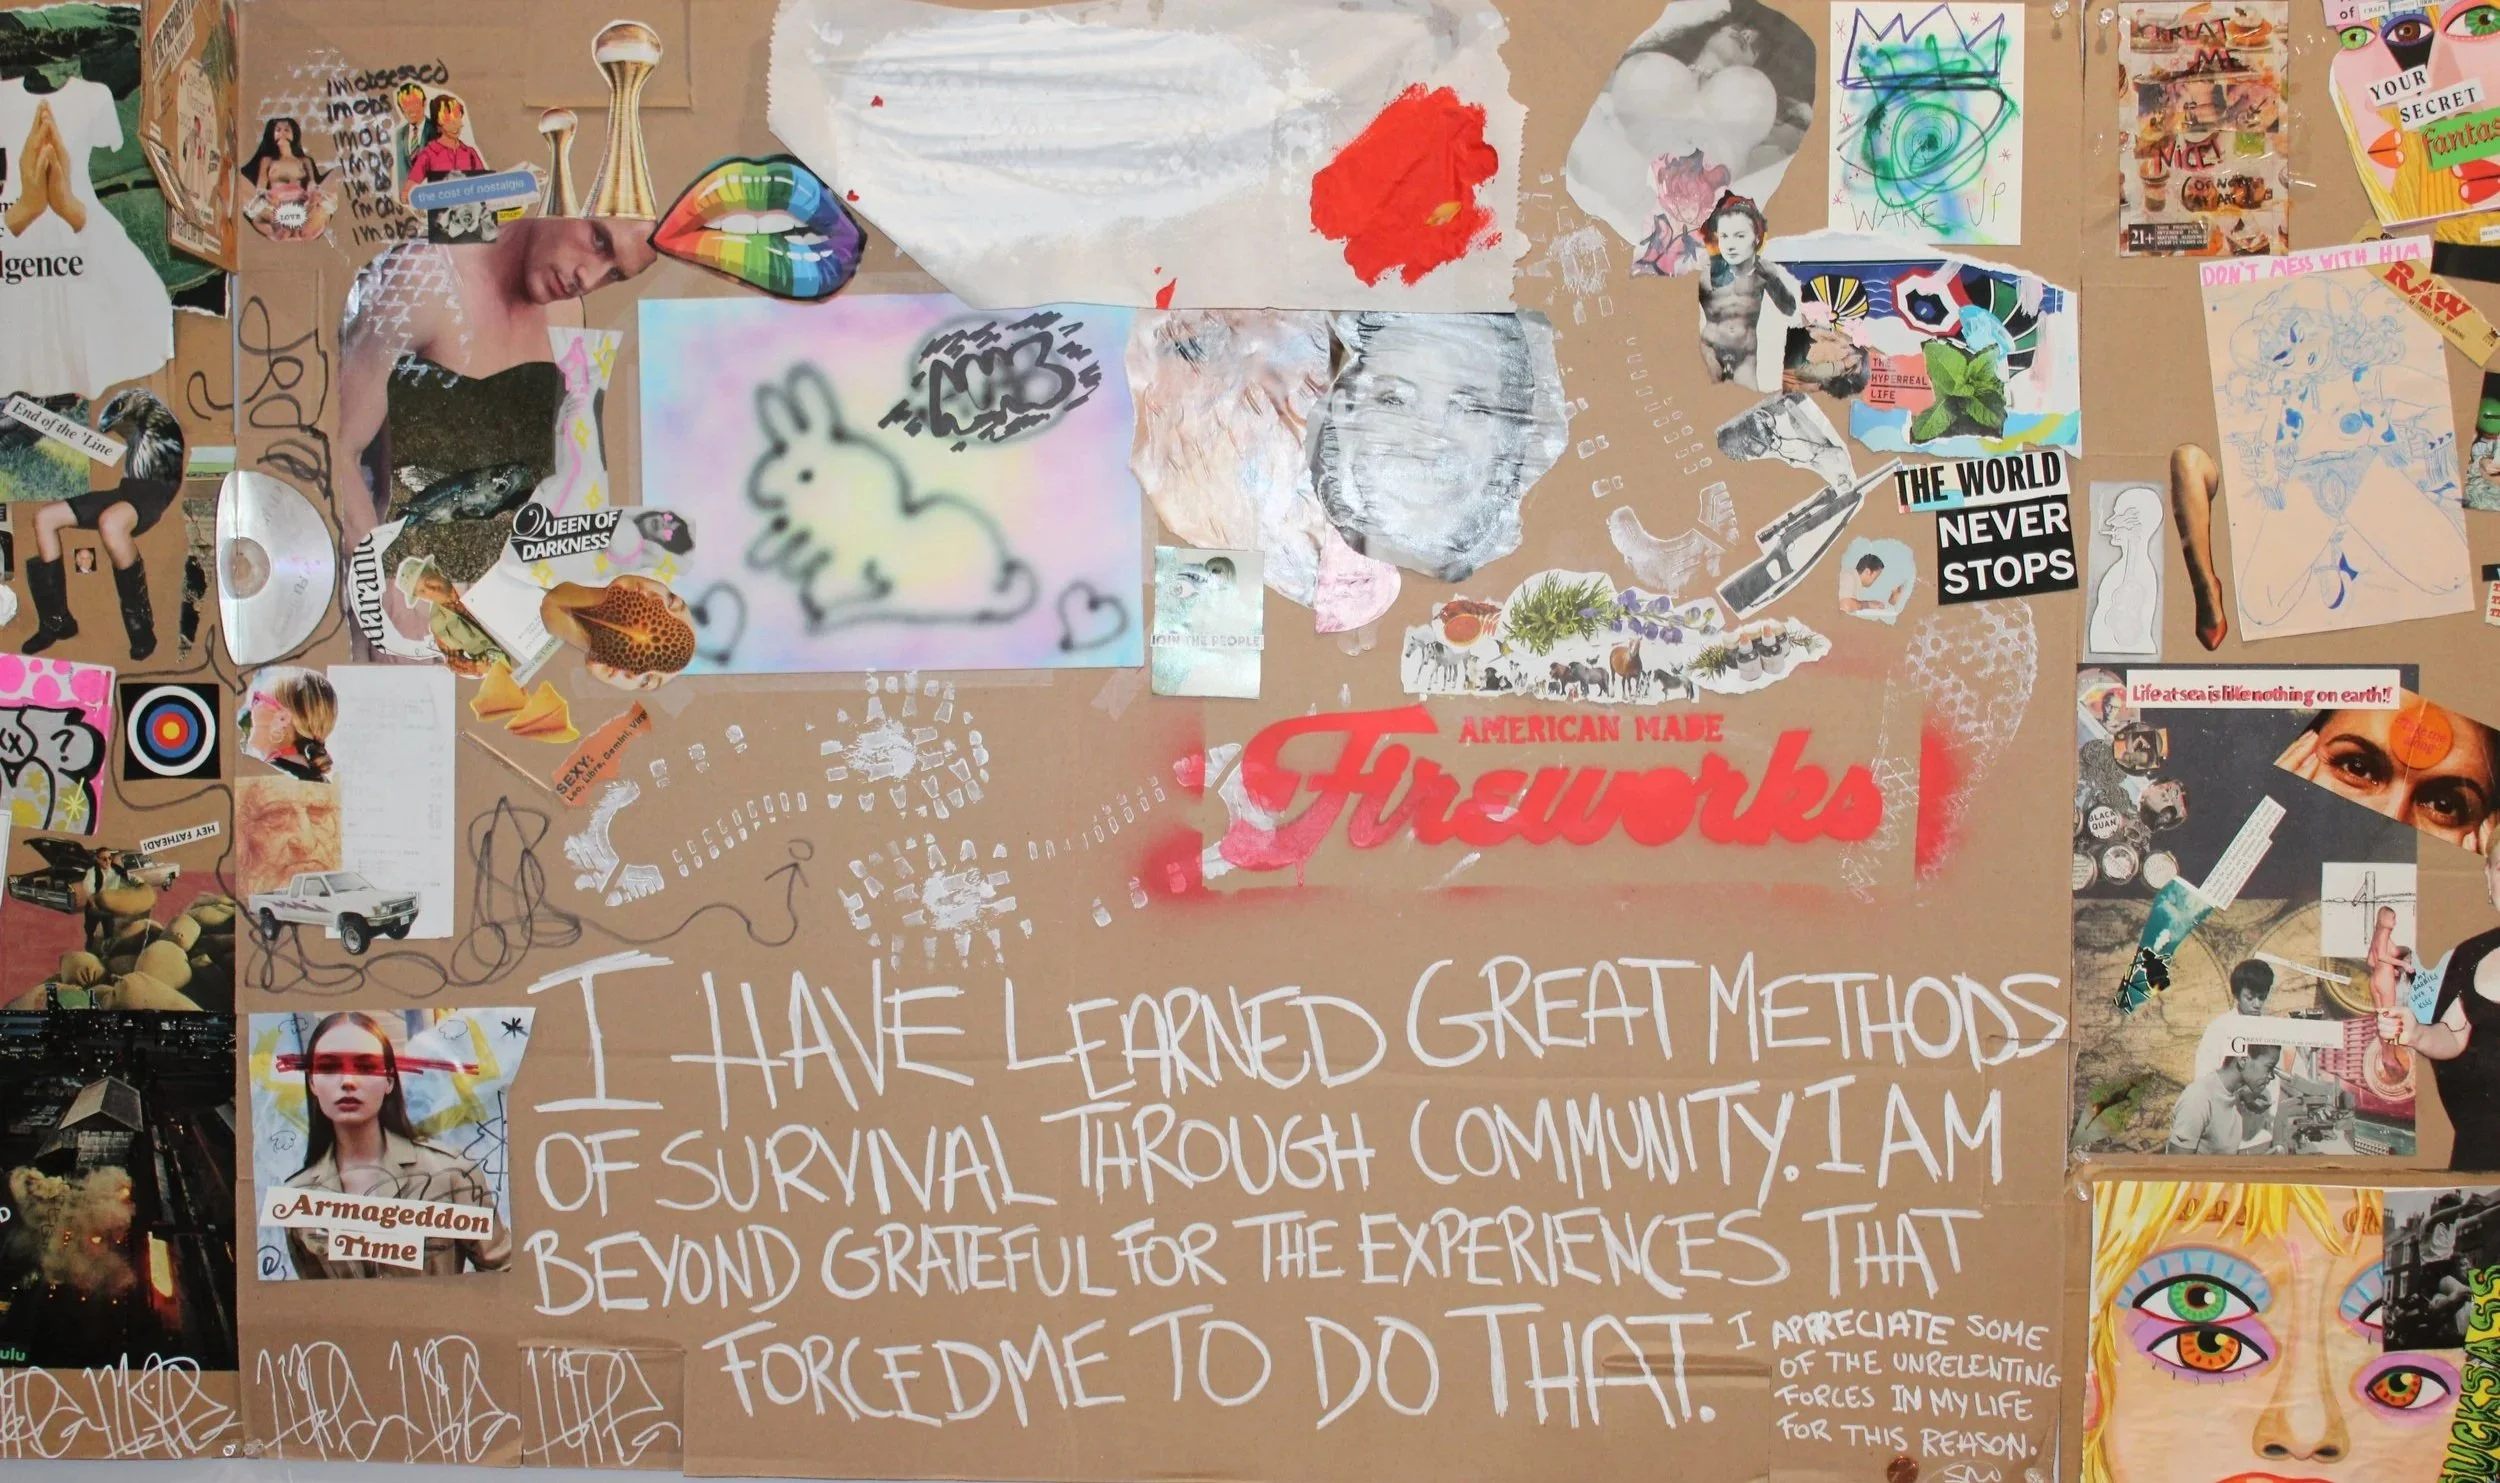 I'm obsessed
I'm obs
I'm ob
I'm ob
I'm o
I'm obs
I'm obs
LOVE
the cost of nostalgia
lgence
End of the Line
WAKE UP
TREAT
ME
NICE!
21+
YOUR
SECRET
Fantas
DON'T MESS WITH HIM
RAW
THE
HYPERREAL
LIFE
THE WORLD
NEVER
STOPS
QUEEN OF
DARKNESS
uarantine
JOIN THE PEOPLE
SEXY:
Leo, Libra, Gemini, Virgo
?
HEY FATHEAD!
AMERICAN MADE
Fireworks
Life at sea is like nothing on earth!
BLACK
QUAN
I HAVE LEARNED GREAT METHODS
OF SURVIVAL THROUGH COMMUNITY. I AM
BEYOND GRATEFUL FOR THE EXPERIENCES THAT
FORCED ME TO DO THAT.
I APPRECIATE SOME
OF THE UNRELENTING
FORCES IN MY LIFE
FOR THIS REASON.
Armageddon
Time
ulu
UCKSASS